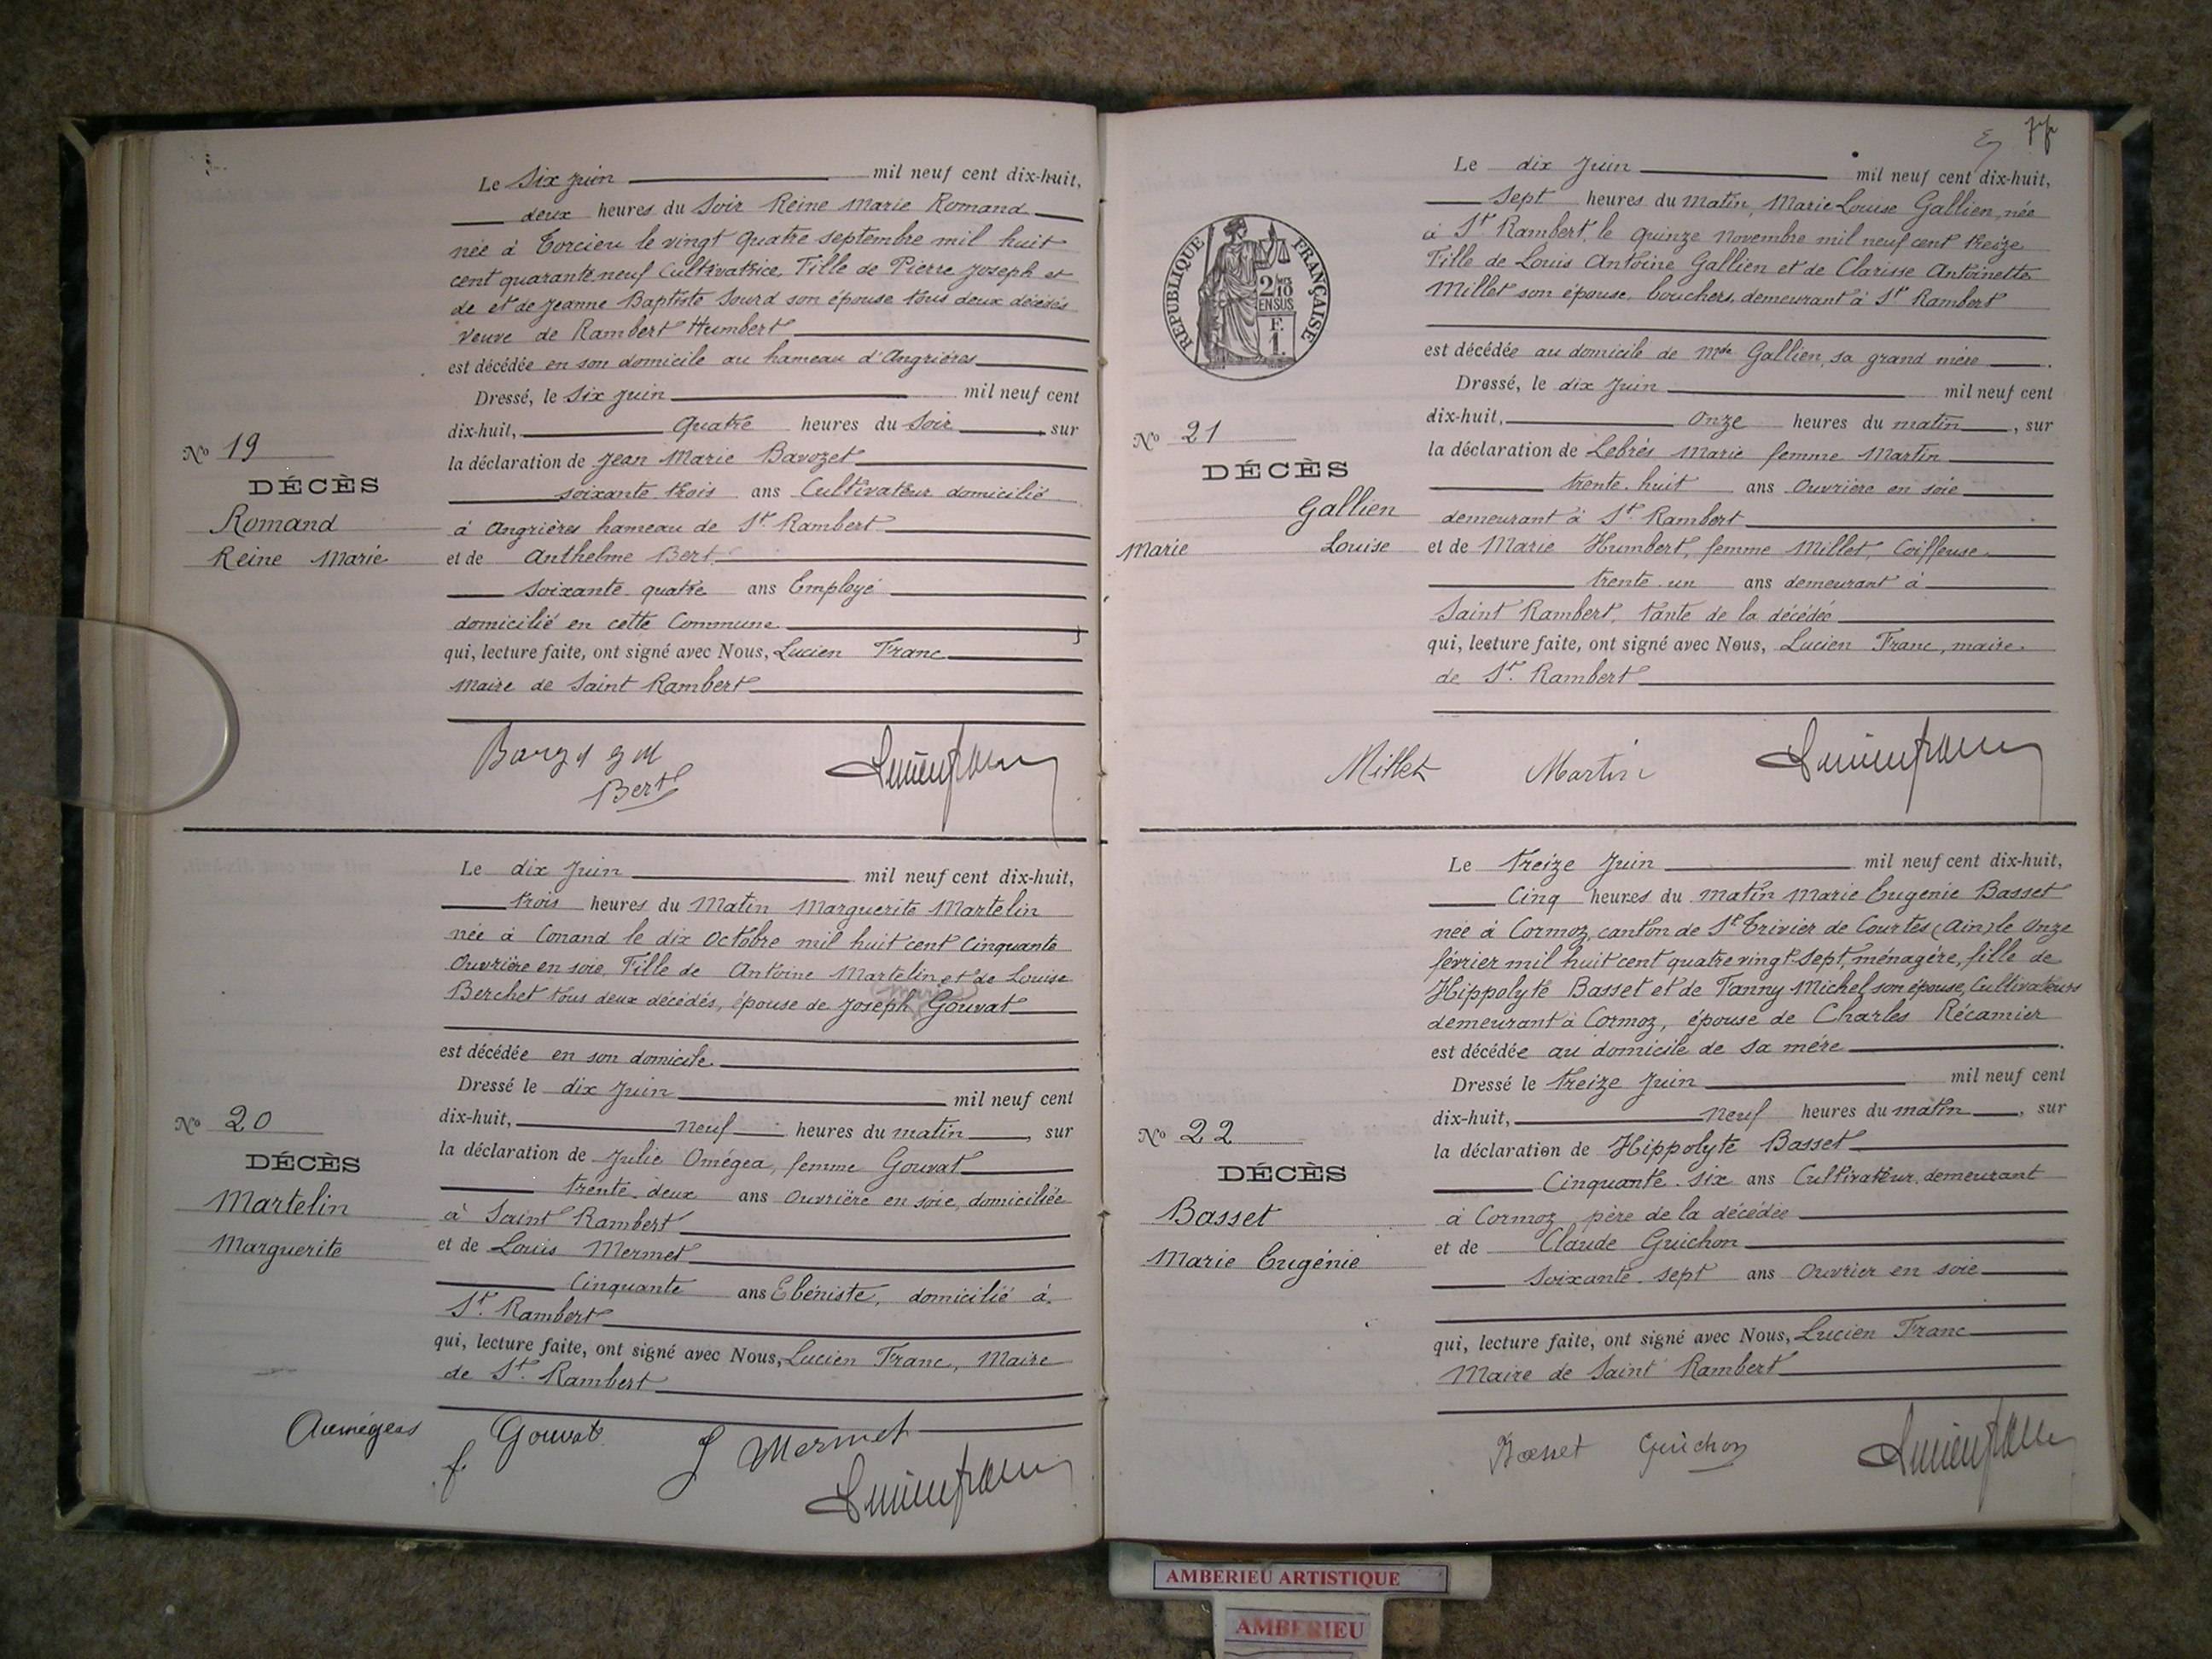 Le Six juin mil neuf cent dix-huit,
deux heures du Soir Reine Marie Romand
née à Torcieu le vingt quatre septembre mil huit
cent quarante neuf Cultivatrice, Fille de Pierre Joseph et
de et de Jeanne Baptiste Sourd son épouse tous deux décédés
Veuve de Rambert Humbert
est décédée en son domicile au hameau d'Angrières
Dressé, le Six juin mil neuf cent
dix-huit, Quatre heures du Soir, sur
No 19
la déclaration de Jean Marie Bavozet
DÉCÈS
soixante trois ans Cultivateur domicilié
Romand
à Angrières hameau de St Rambert
Reine Marie
et de Anthelme Bert
Soixante quatre ans Employé
domicilié en cette Commune
qui, lecture faite, ont signé avec Nous, Lucien Franc
Maire de Saint Rambert
Bert
Lucien Franc
Le dix Juin mil neuf cent dix-huit,
trois heures du Matin Marguerite Martelin
née à Conand le dix Octobre mil huit cent Cinquante
Ouvrière en soie, Fille de Antoine Martelin et de Louise
Marie
Berchet tous deux décédés, épouse de Joseph Gouvat
est décédée en son domicile
Dressé le dix Juin mil neuf cent
No 20
dix-huit, neuf heures du matin, sur
DÉCÈS
la déclaration de Julie Omégea, femme Gouvat
Martelin
trente deux ans Ouvrière en soie, domiciliée
à Saint Rambert
Marguerite
et de Louis Mermet
Cinquante ans Ebéniste, domicilié à
St. Rambert
qui, lecture faite, ont signé avec Nous, Lucien Franc, Maire
de St. Rambert
Aumégeas f Gouvat J Mermet
Lucien Franc
Le dix Juin mil neuf cent dix-huit,
Sept heures du Matin, Marie Louise Gallien, née
à St Rambert, le quinze Novembre mil neuf cent treize
Fille de Louis Antoine Gallien et de Clarisse Antoinette
Millet son épouse, bouchers, demeurant à St Rambert
REPUBLIQUE FRANÇAISE
2/10 EN SUS
F. 1.
est décédée au domicile de Mde Gallien, sa grand mère
Dressé, le dix Juin mil neuf cent
dix-huit, Onze heures du matin, sur
No 21
la déclaration de Lebrés Marie femme Martin
DÉCÈS
trente huit ans Ouvrière en soie
Gallien
demeurant à St. Rambert
Marie Louise
et de Marie Humbert, femme Millet, Coiffeuse
trente un ans demeurant à
Saint Rambert, tante de la décédée
qui, lecture faite, ont signé avec Nous, Lucien Franc, maire
de St. Rambert
Millet Martin Lucien Franc
Le treize Juin mil neuf cent dix-huit,
Cinq heures du matin Marie Eugénie Basset
née à Cormoz, canton de St Trivier de Courtes (Ain) le Onze
février mil huit cent quatre vingt Sept, ménagère, fille de
Hippolyte Basset et de Fanny Michel, son épouse, Cultivateurs
demeurant à Cormoz, épouse de Charles Récamier
est décédée au domicile de sa mère
Dressé le treize Juin mil neuf cent
dix-huit, Neuf heures du matin, sur
No 22
la déclaration de Hippolyte Basset
DÉCÈS
Cinquante six ans Cultivateur, demeurant
Basset
à Cormoz père de la décédée
Marie Eugénie
et de Claude Guichon
Soixante sept ans Ouvrier en soie
qui, lecture faite, ont signé avec Nous, Lucien Franc
Maire de Saint Rambert
Basset Guichon Lucien Franc
AMBERIEU ARTISTIQUE
AMBERIEU